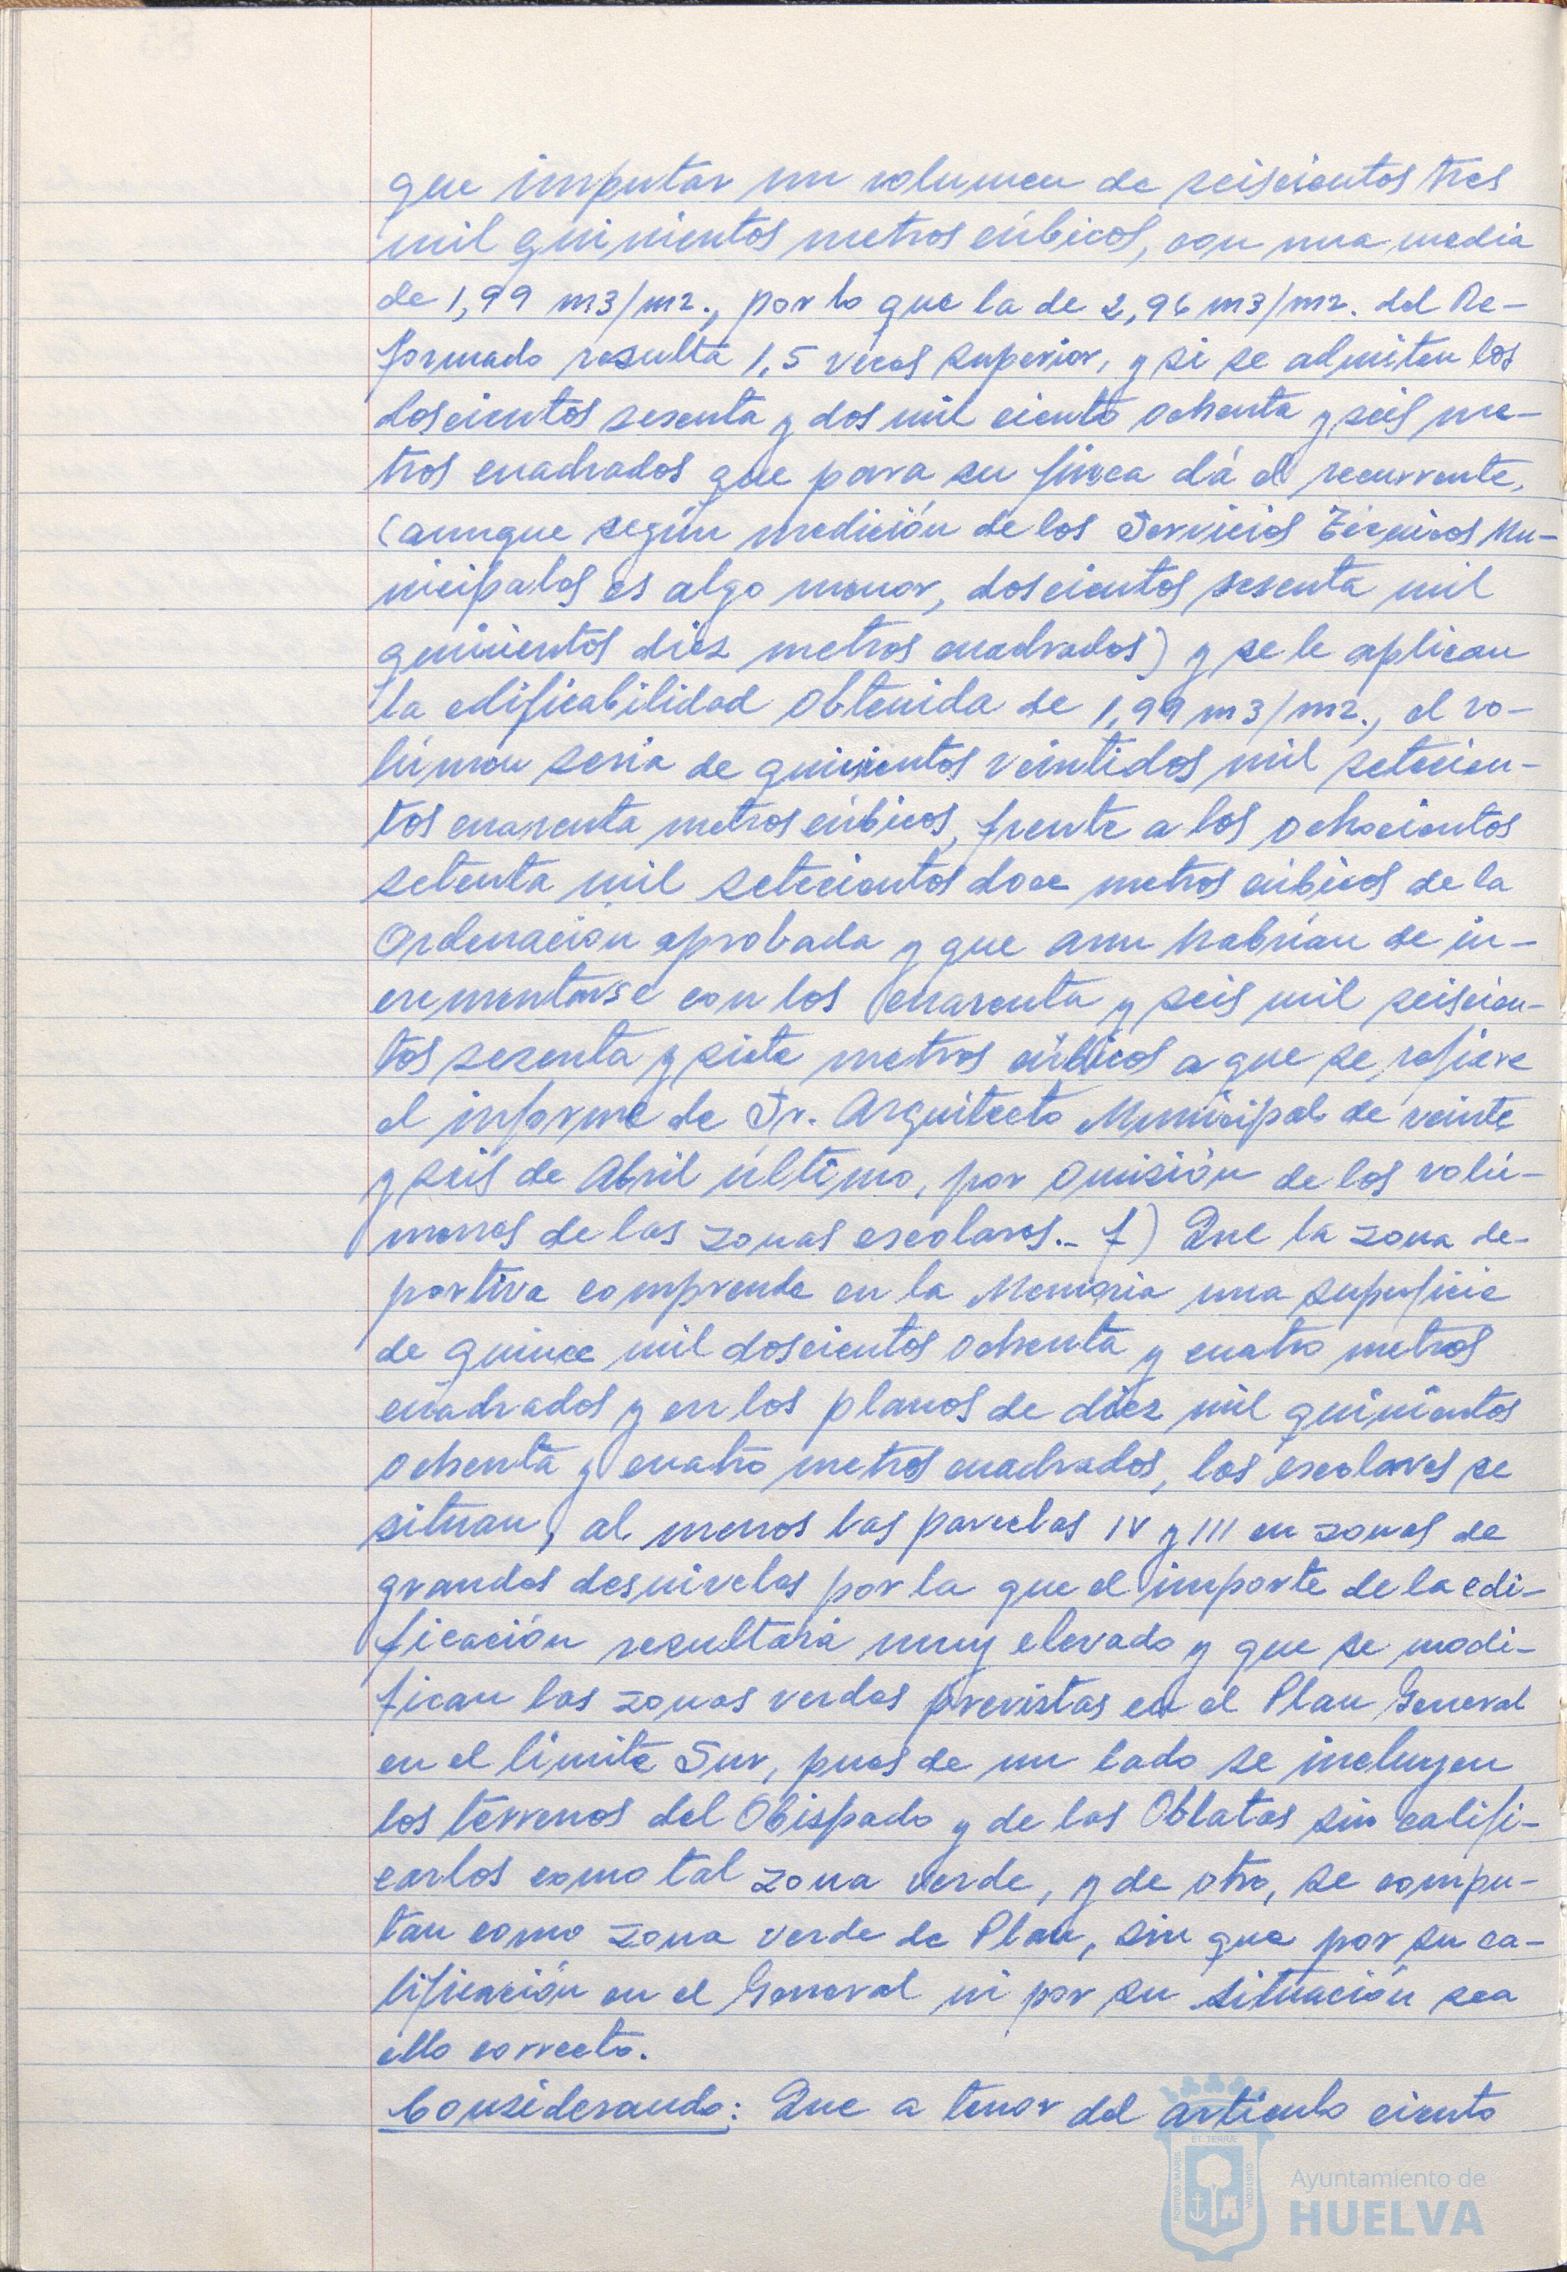 que imputar un volumen de seiscientos tres
mil quinientos metros cúbicos, con una media
de 1,99 m3/m2., por lo que la de 2,96 m3/m2. del Re-
formado resulta 1,5 veces superior, y si se admiten los
doscientos sesenta y dos mil ciento ochenta y seis me-
tros cuadrados que para su finca dá el recurrente,
(aunque según medición de los Servicios Técnicos Mu-
nicipales es algo menor, doscientos sesenta mil
quinientos diez metros cuadrados) y se le aplican
la edificabilidad obtenida de 1,99 m3/m2., el vo-
lúmen seria de quinientos veintidos mil setecien-
tos cuarenta metros cúbicos, frente a los ochocientos
setenta mil setecientos doce metros cúbicos de la
Ordenación aprobada y que aun habrian de in-
crementarse con los cuarenta y seis mil seiscien-
tos sesenta y siete metros cúbicos a que se refiere
el informe de Sr. Arquitecto Municipal de veinte
y seis de Abril último, por omisión de los volú-
menes de las zonas escolares.- f) Que la zona de-
portiva comprende en la Memoria una superficie
de quince mil doscientos ochenta y cuatro metros
cuadrados y en los planos de diez mil quinientos
ochenta y cuatro metros cuadrados, los escolares se
situan, al menos las parcelas IV y III en zonas de
grandes desniveles por la que el importe de la edi-
ficación resultará muy elevado y que se modi-
fican las zonas verdes previstas en el Plan General
en el limite Sur, pues de un lado se incluyen
los terrenos del Obispado y de las Oblatas sin califi-
carlos como tal zona verde, y de otro, se compu-
tan como zona verde de Plan, sin que por su ca-
lificación en el General ni por su situación sea
ello correcto.
Considerando: Que a tenor del articulo ciento
PORTUS MARIS
ET TERRÆ
CUSTODIA
Ayuntamiento de
HUELVA